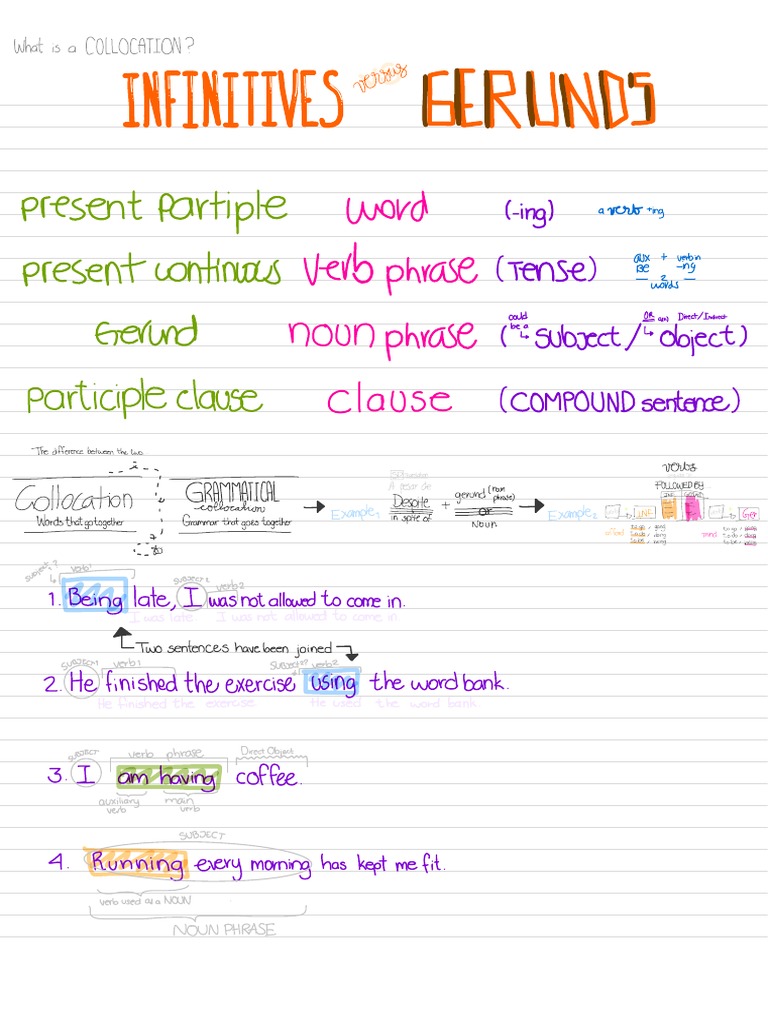 What is a COLLOCATION?
INFINITIVES versus GERUNDS
present Partiple word (-ing) a verb +ing
present continuous Verb phrase (Tense) aux + verb in
BE -ng
2
words
Gerund noun phrase (could be a Subject / OR a(n) Direct/Indirect object)
participle clause clause (COMPOUND sentence)
The difference between the two
Collocation
Words that go together
GRAMMATICAL
collocation
Grammar that goes together
Example 1
Despite
in spite of
+
gerund (noun phrase)
or
NOUN
Example 2
verbs
FOLLOWED BY
subject ? verb1 subject 2 verb 2
1. Being late, I was not allowed to come in.
I was late. I was not allowed to come in.
Two sentences have been joined
SUBJECT 1 verb 1 SUBJECT? verb 2
2. He finished the exercise using the word bank.
He finished the exercise He used the word bank.
SUBJECT verb phrase Direct Object
3. I am having coffee.
auxiliary verb main verb
SUBJECT
4. Running every morning has kept me fit.
verb used as a NOUN
NOUN PHRASE